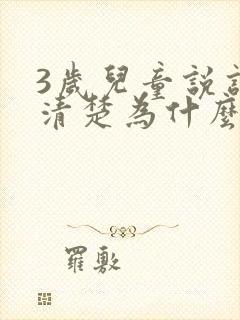 3歲兒童說
清楚為什麼
羅敷